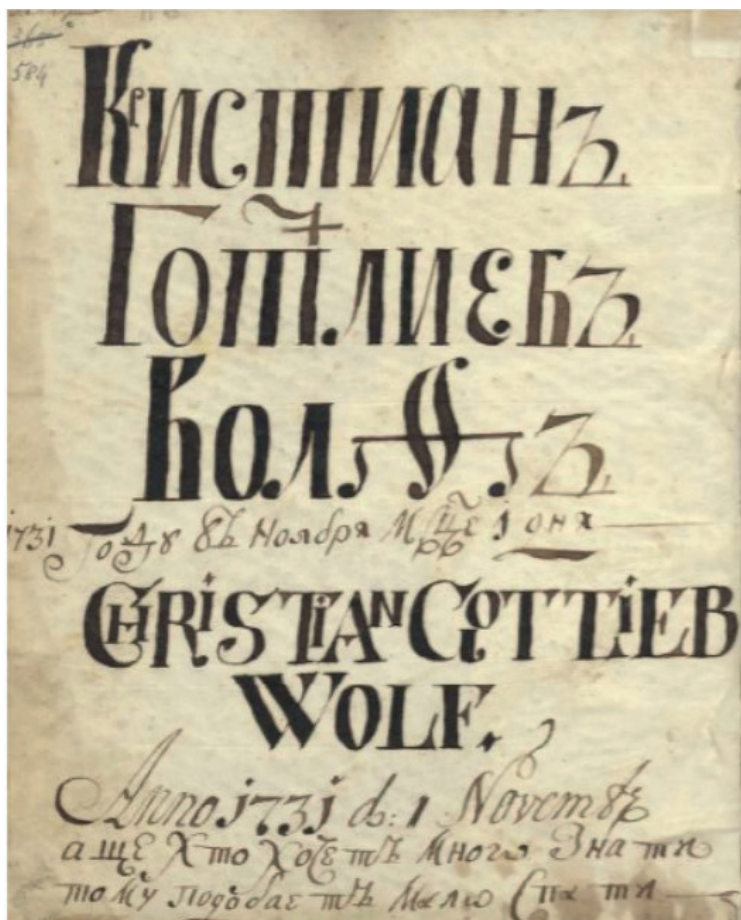 584
Кристианъ
Готлиевъ
Волфъ
1731 году въ Ноября
CHRISTIAN GOTTLIEB
WOLF.
Anno 1731 d: 1 Novembr
аще хто хощетъ много знати
тому подобаетъ мало спати